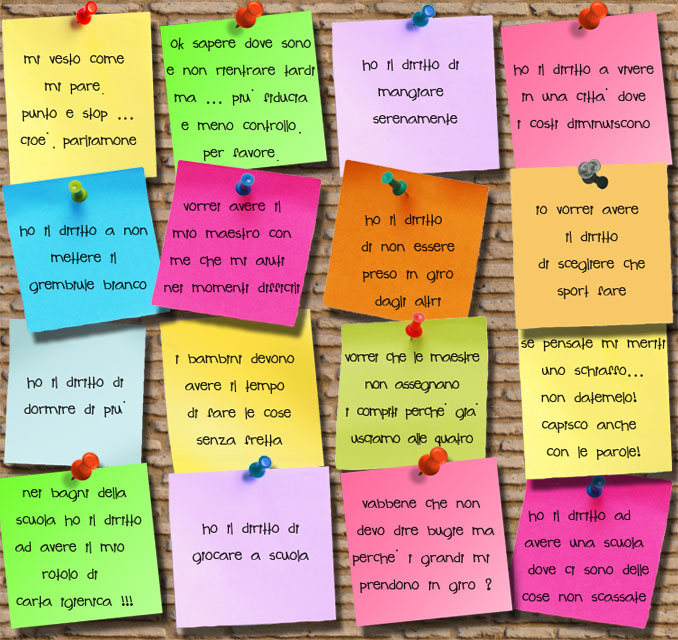 mi vesto come
mi pare.
punto e stop ...
cioe'. parliamone
ok sapere dove sono
e non rientrare tardi
ma ... piu' fiducia
e meno controllo.
per favore.
ho il diritto di
mangiare
serenamente
ho il diritto a vivere
in una citta' dove
i costi diminuiscono
ho il diritto a non
mettere il
grembiule bianco
vorrei avere il
mio maestro con
me che mi aiuti
nei momenti difficili
ho il diritto
di non essere
preso in giro
dagli altri
io vorrei avere
il diritto
di scegliere che
sport fare
ho il diritto di
dormire di piu'
i bambini devono
avere il tempo
di fare le cose
senza fretta
vorrei che le maestre
non assegnano
i compiti perche' gia'
usciamo alle quatro
se pensate mi meriti
uno schiaffo...
non datemelo!
capisco anche
con le parole!
nei bagni della
scuola ho il diritto
ad avere il mio
rotolo di
carta igienica !!!
ho il diritto di
giocare a scuola
vabbene che non
devo dire bugie ma
perche' i grandi mi
prendono in giro ?
ho il diritto ad
avere una scuola
dove ci sono delle
cose non scassate